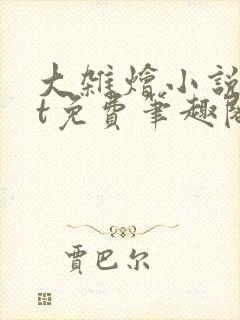 大雜燴小說
t免費筆趣閣
賈巴尔